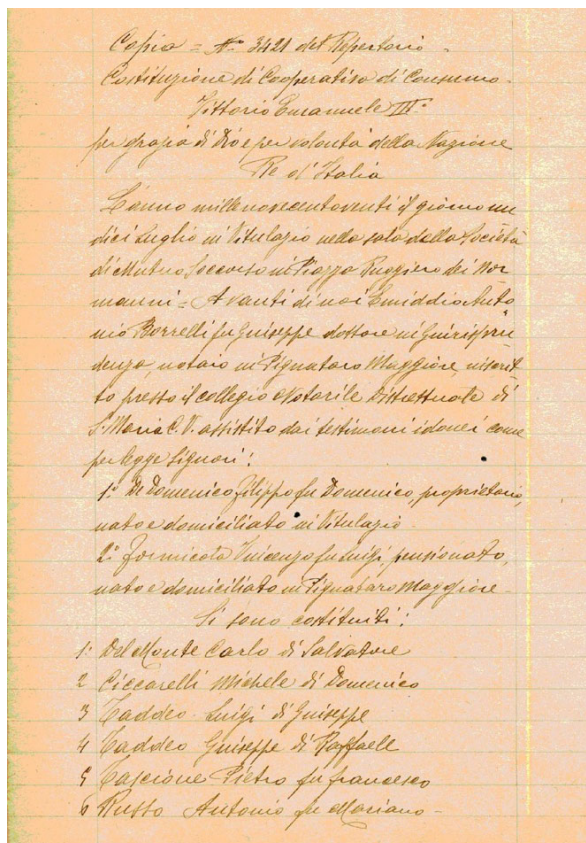 Copia = N.° 3421 del Repertorio -
Costituzione di Cooperativa di Consumo -
Vittorio Emanuele III.°
per grazia di Dio e per volontà della Nazione
Re d'Italia
L'anno millenovecentoventi il giorno un
dici Luglio in Vitulazio nella sala della Società
di Mutuo Soccorso in Piazza Ruggiero dei Nor
manni = Avanti di noi Emiddio Anto
nio Borrelli fu Giuseppe dottore in Giurispru
denza, notaio in Pignataro Maggiore, inscrit
to presso il collegio Notarile Distrettuale di
S. Maria C. V. assistito dai testimoni idonei come
per legge Signori:
1° Di Domenico Filippo fu Domenico, proprietario,
nato e domiciliato in Vitulazio -
2° Formicola Vincenzo fu Luigi, pensionato,
nato e domiciliato in Pignataro Maggiore -
Si sono costituiti:
1: Del Monte Carlo di Salvatore
2 Ciccarelli Michele di Domenico
3 Taddeo Luigi di Giuseppe
4 Taddeo Giuseppe di Raffaele
5 Cascione Pietro fu Francesco
6 Russo Antonio fu Mariano -